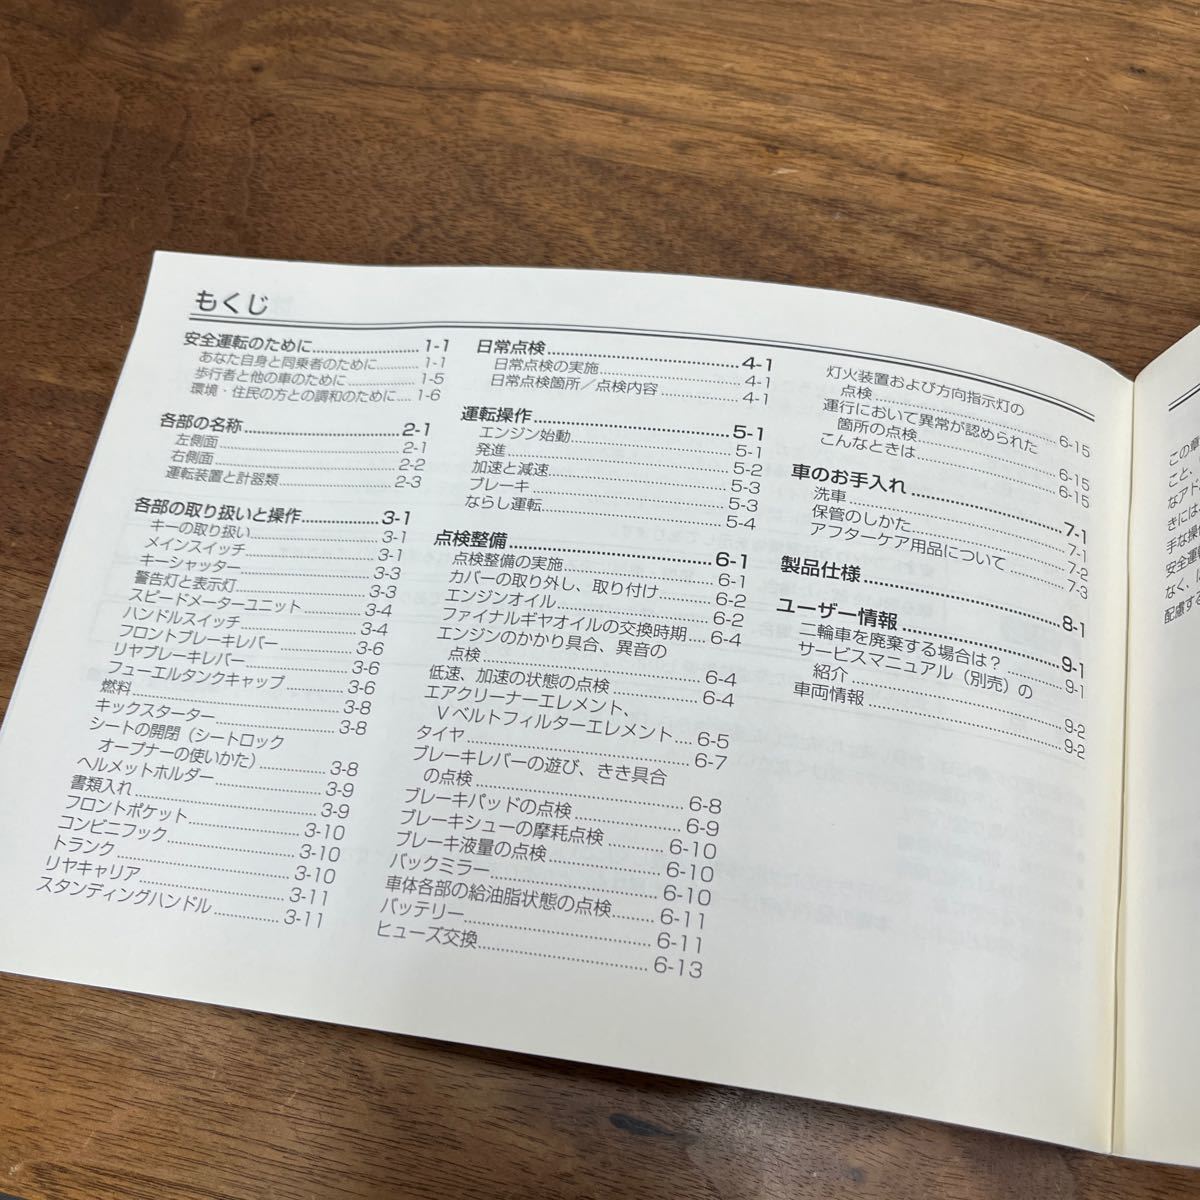 もくじ
安全運転のために 1-1
あなた自身と同乗者のために 1-1
歩行者と他の車のために 1-5
環境・住民の方との調和のために 1-6
各部の名称 2-1
左側面 2-1
右側面 2-2
運転装置と計器類 2-3
各部の取り扱いと操作 3-1
キーの取り扱い 3-1
メインスイッチ 3-1
キーシャッター 3-3
警告灯と表示灯 3-3
スピードメーターユニット 3-4
ハンドルスイッチ 3-4
フロントブレーキレバー 3-6
リヤブレーキレバー 3-6
フューエルタンクキャップ 3-6
燃料 3-8
キックスターター 3-8
シートの開閉（シートロック
オープナーの使いかた） 3-8
ヘルメットホルダー 3-9
書類入れ 3-9
フロントポケット 3-10
コンビニフック 3-10
トランク 3-10
リヤキャリア 3-11
スタンディングハンドル 3-11
日常点検 4-1
日常点検の実施 4-1
日常点検箇所／点検内容 4-1
運転操作 5-1
エンジン始動 5-1
発進 5-2
加速と減速 5-3
ブレーキ 5-3
ならし運転 5-4
点検整備 6-1
点検整備の実施 6-1
カバーの取り外し、取り付け 6-2
エンジンオイル 6-2
ファイナルギヤオイルの交換時期 6-4
エンジンのかかり具合、異音の
点検 6-4
低速、加速の状態の点検 6-4
エアクリーナーエレメント、
Vベルトフィルターエレメント 6-5
タイヤ 6-7
ブレーキレバーの遊び、きき具合
の点検 6-8
ブレーキパッドの点検 6-9
ブレーキシューの摩耗点検 6-10
ブレーキ液量の点検 6-10
バックミラー 6-10
車体各部の給油脂状態の点検 6-11
バッテリー 6-11
ヒューズ交換 6-13
灯火装置および方向指示灯の
点検 6-15
運行において異常が認められた
箇所の点検 6-15
こんなときは 6-15
車のお手入れ 7-1
洗車 7-1
保管のしかた 7-2
アフターケア用品について 7-3
製品仕様 8-1
ユーザー情報 9-1
二輪車を廃棄する場合は？ 9-1
サービスマニュアル（別売）の
紹介 9-2
車両情報 9-2
この車
こと、
なアド
きには、
手な操作
安全運転
なく、
配慮する